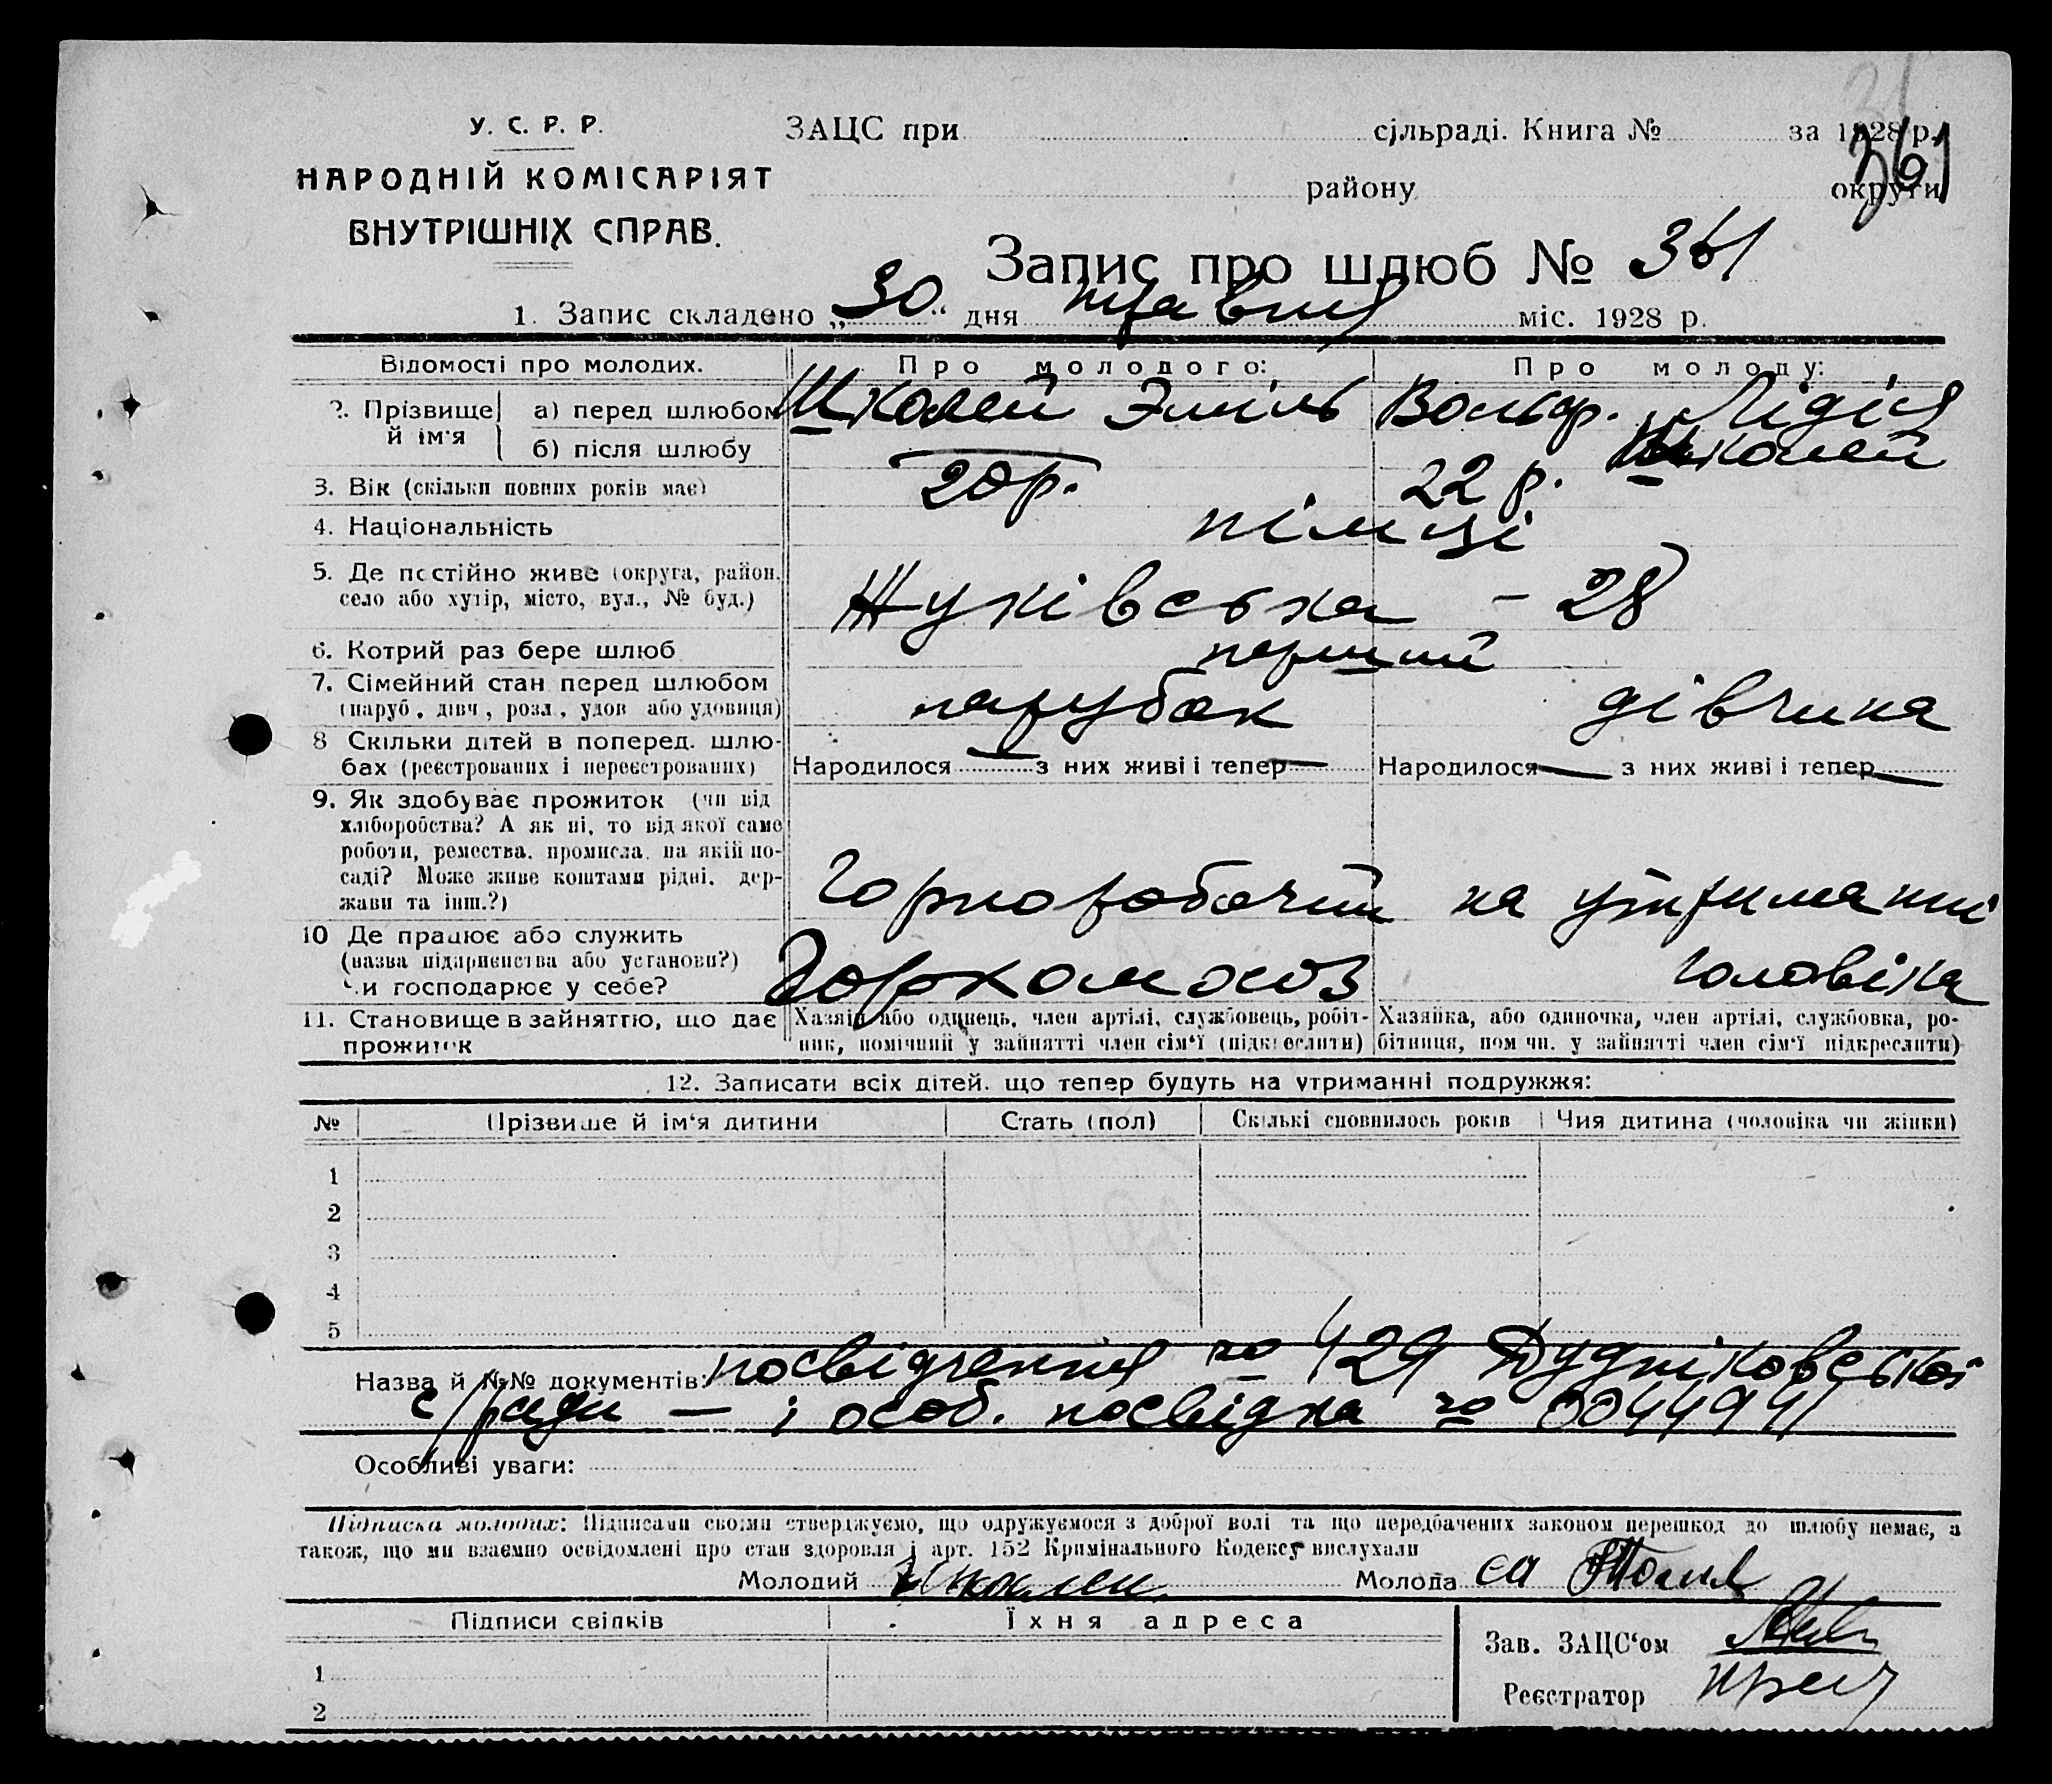 У. С. Р. Р.
НАРОДНІЙ КОМІСАРІЯТ
ВНУТРІШНІХ СПРАВ.
ЗАЦС при сільраді. Книга № за 1928 р.
району округи
361
Запис про шлюб № 361
1. Запис складено „30“ дня травня міс. 1928 р.
Відомості про молодих. Про молодого: Про молоду:
2. Прізвище й ім'я а) перед шлюбом Школей Эміль Вольф. Лідія
б) після шлюбу Школей
3. Вік (скільки повних років має) 20 р. 22 р.
4. Національність німці
5. Де постійно живе (округа, район, село або хутір, місто, вул., № буд.) Жуківська - 28
6. Котрий раз бере шлюб перший
7. Сімейний стан перед шлюбом (паруб., дівч., розл., удов або удовиця) парубок дівчина
8 Скільки дітей в поперед. шлюбах (реєстрованих і нереєстрованих) Народилося — з них живі і тепер — Народилося — з них живі і тепер —
9. Як здобуває прожиток (чи від хліборобства? А як ні, то від якої саме роботи, ремества, промисла, на якій посаді? Може живе коштами рідні, держави та інш.?) Горноробочий на утриманні
10 Де працює або служить (назва підприємства або установи?) Чи господарює у себе? Горкомхоз чоловіка
11. Становище в зайняттю, що дає прожиток Хазяїн або одинець, член артілі, службовець, робітник, помічний у зайнятті член сім'ї (підкреслити) Хазяйка, або одиночка, член артілі, службовка, робітниця, пом чн. у зайнятті член сім'ї підкреслити)
12. Записати всіх дітей, що тепер будуть на утриманні подружжя:
№ Прізвище й ім'я дитини Стать (пол) Скількі сповнилось років Чия дитина (чоловіка чи жінки)
1
2
3
4
5
Назва й №№ документів: посвідчення № 429 Дудніковської
с/ради — і особ. посвідка № 0044994
Особливі уваги:
Підписка молодих: Підписами своїми стверджуємо, що одружуємося з доброї волі та що передбачених законом перешкод до шлюбу немає, а
також, що ми взаємно освідомлені про стан здоровля і арт. 152 Кримінального Кодексу вислухали
Молодий Школей Молода
Підписи свідків Їхня адреса
Зав. ЗАЦС'ом
1
Реєстратор
2